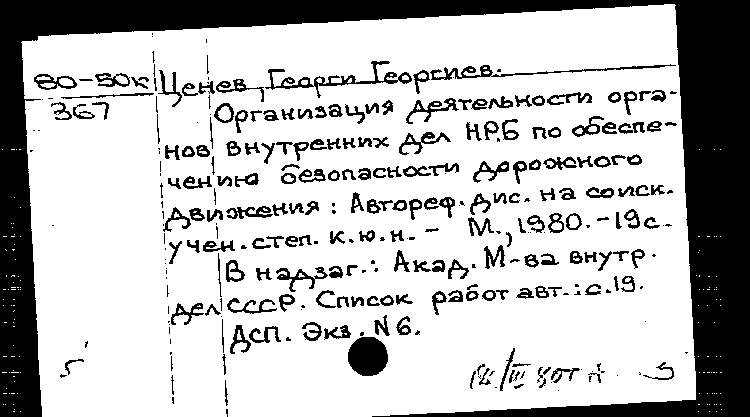 80-50к Ценев, Георги Георгиев.
367 Организация деятельности орга-
нов внутренних дел НРБ по обеспе-
чению безопасности дорожного
движения : Автореф. дис. на соиск.
учен. степ. к.ю.н. - М., 1980. - 19 с.
В надзаг.: Акад. М-ва внутр.
дел СССР. Список работ авт.: с.19.
ДСП. Экз. N 6.
5
III 80г